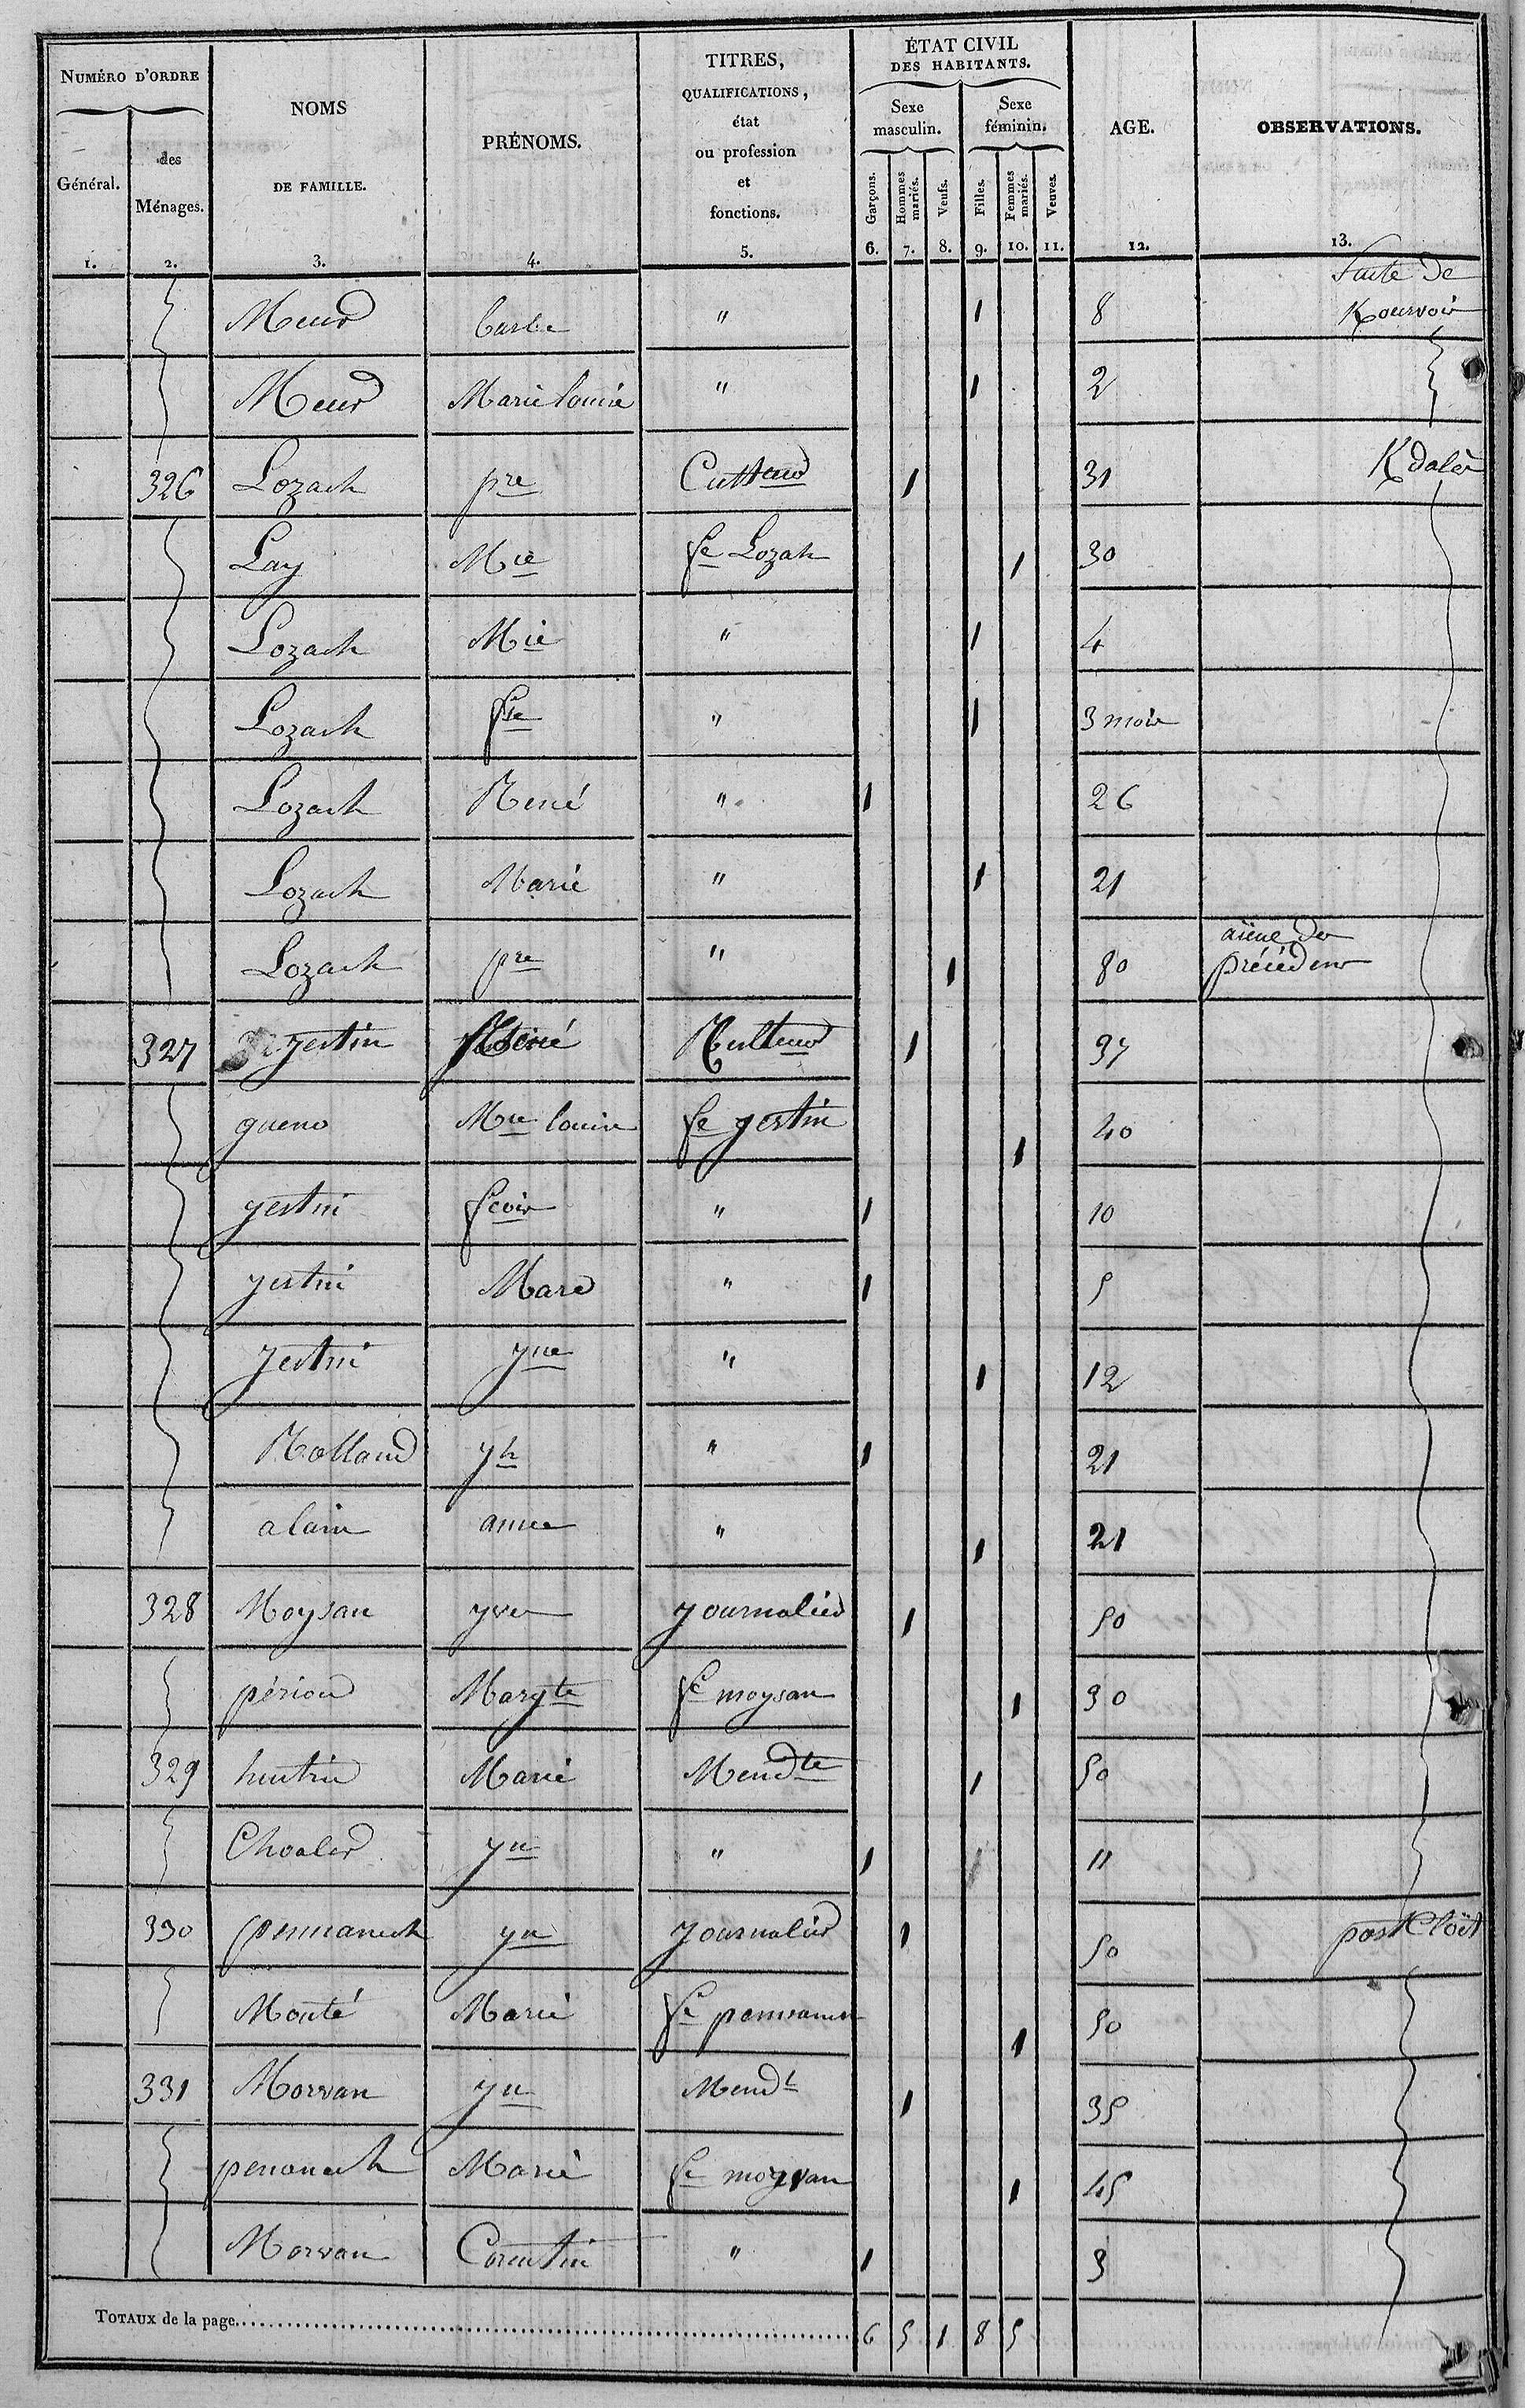 NUMÉRO D'ORDRE
Général.
des Ménages.
NOMS
DE FAMILLE.
PRÉNOMS.
TITRES,
QUALIFICATIONS,
état
ou profession
et
fonctions.
ÉTAT CIVIL
DES HABITANTS.
Sexe masculin.
Sexe féminin.
Garçons.
Hommes mariés.
Veufs.
Filles.
Femmes mariés.
Veuves.
AGE.
OBSERVATIONS.
1. 2. 3. 4. 5. 6. 7. 8. 9. 10. 11. 12. 13.
Suite de
Meur barbe " 1 8 Kourvois
Meur Marie louise " 1 2
326 Lozach pre Cultteur 1 31 Kdalès
Lay Mie fe Lozah 1 30
Lozach Mie " 1 4
Lozach fse " 1 3 mois
Lozach René " 1 26
Lozach Marie " 1 21
Lozach pre " 1 80 aïeul des précédens
327 gestin René Culteur 1 37
gueno Mie louise fe gestin 1 40
gestin fcois " 1 10
gestin Marc " 1 5
gestin yne " 1 12
Rolland yh " 1 21
alain anne " 1 21
328 Moysan yves journalier 1 50
périou Margte fe moysan 1 30
329 Marie Mendte 1 50
Choaler yn " 1 11
330 penmanech yn journalier 1 50
Monté Marie fe penmanech 1 50
331 Morvan yn Mendt 1 35
penanech Marie fe morvan 1 45
Morvan Corentin " 1 3
TOTAUX de la page 6 5 1 8 5